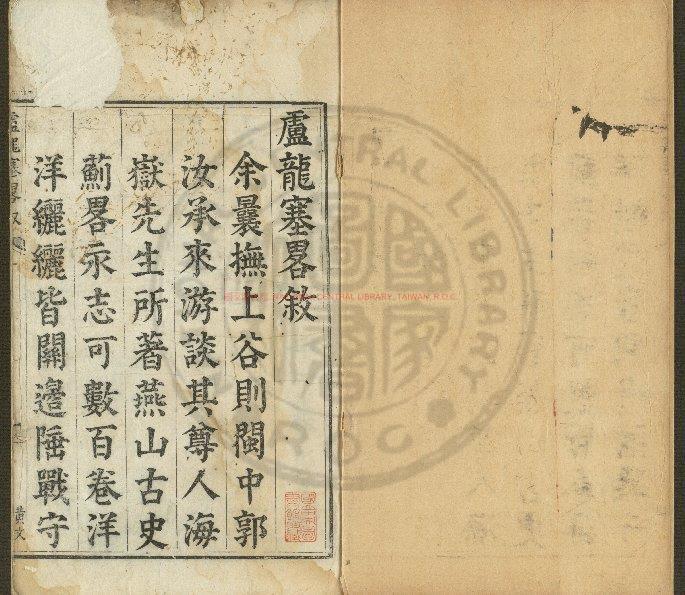 盧龍塞畧敘
余曩撫上谷則閩中郭
汝承來游談其尊人海
嶽先生所著燕山古史
薊畧永志可數百卷洋
洋纚纚皆關邊陲戰守
盧龍塞畧
黃文
CENTRAL LIBRARY, TAIWAN, R.O.C.
CENTRAL LIBRARY
ROC